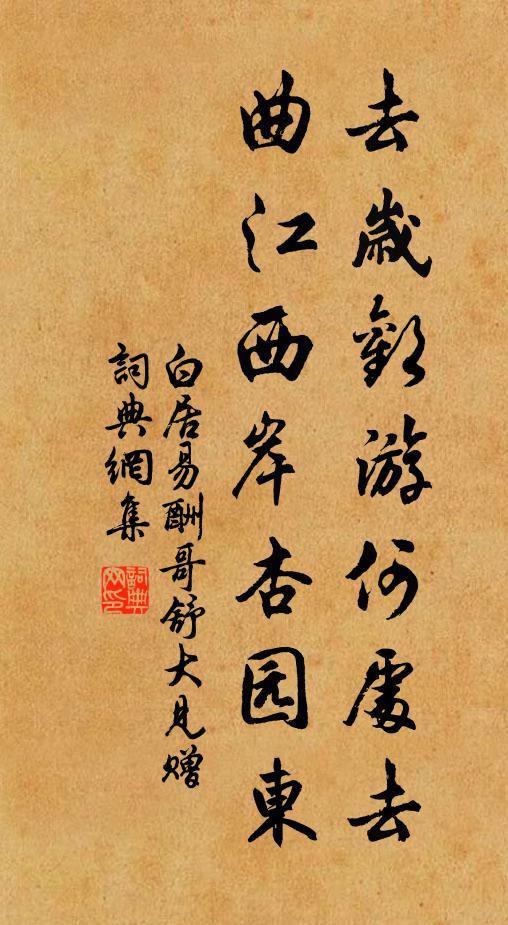 去歲歡游何處去
曲江西岸杏园東
白居易酬哥舒大見贈
詞典網集
詞典网印